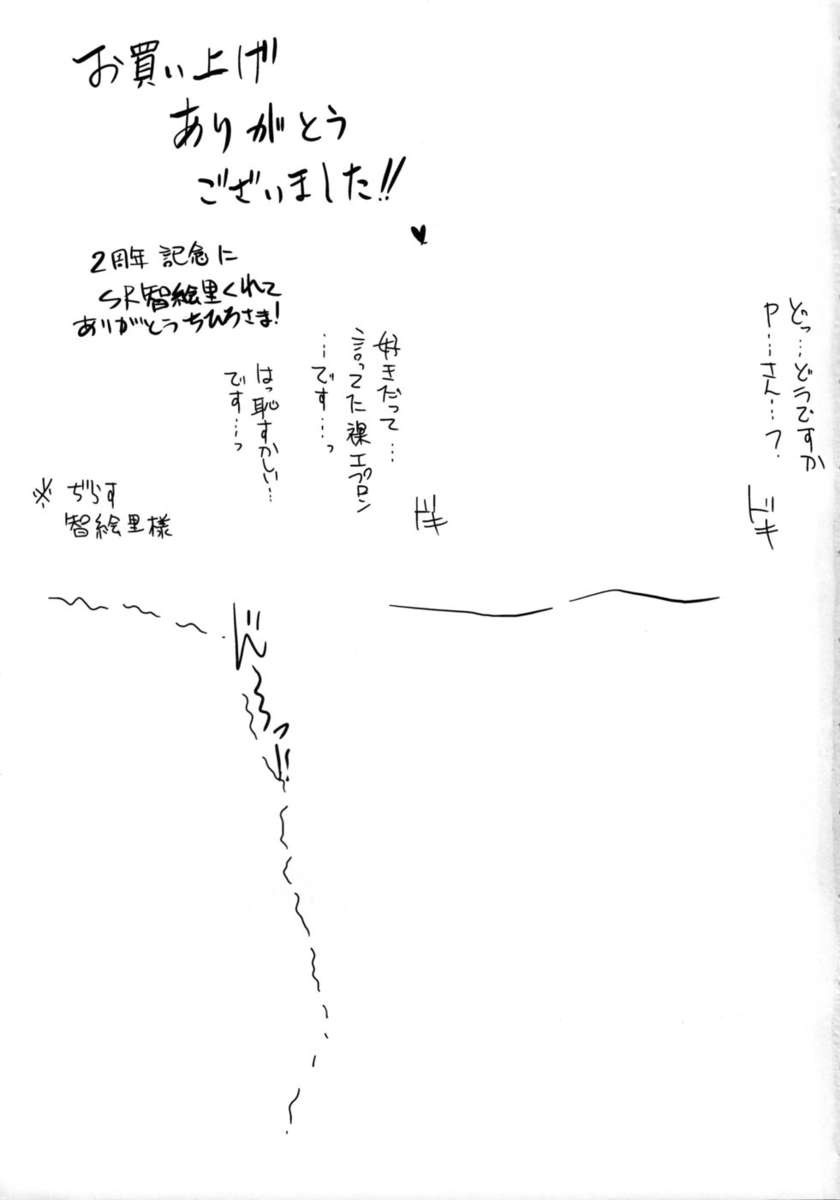 お買い上げ
ありがとう
ございました!!
2周年 記念に
SR智絵里くれて
ありがとうちひろさま!
どっ…どうですか
P…さん…?
好きだって…
言ってた裸エプロン
…です…っ
はっ恥ずかしい…
です…っ
ドキ
ドキ
※
智絵里様